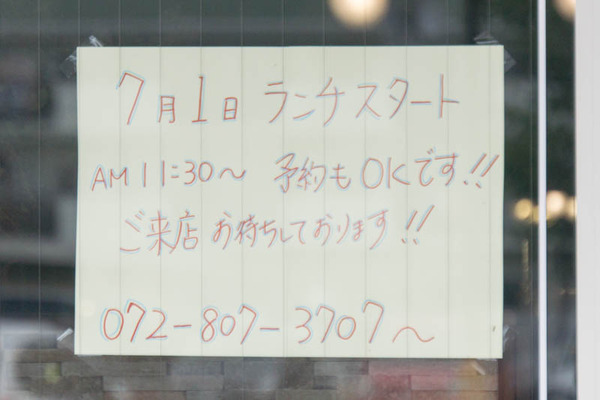 7月1日 ランチスタート
AM 11:30〜 予約もOKです!!
ご来店お待ちしております!!
072-807-3707〜